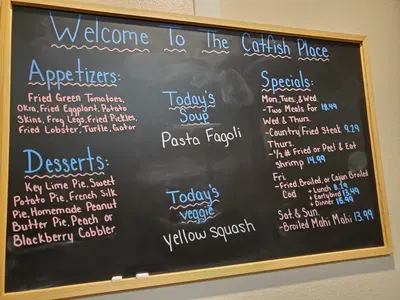 Welcome To The Catfish Place
Appetizers:
Fried Green Tomatoes,
Okra, Fried Eggplant, Potato
Skins, Frog Legs, Fried Pickles,
Fried Lobster, Turtle, Gator
Desserts:
Key Lime Pie, Sweet
Potato Pie, French Silk
Pie, Homemade Peanut
Butter Pie, Peach or
Blackberry Cobbler
Today's
Soup
Pasta Fagoli
Today's
veggie
yellow squash
Specials:
Mon, Tues, & Wed.
- Two Meals For 18.49
Wed. & Thurs.
- Country Fried Steak 9.29
Thurs.
- 1/2 # Fried or Peel & Eat
shrimp 14.99
Fri.
- Fried, Broiled, or Cajun Broiled
Cod
+ Lunch 8.79
+ Earlybird 13.49
+ Dinner
Sat. & Sun.
- Broiled Mahi Mahi 13.99